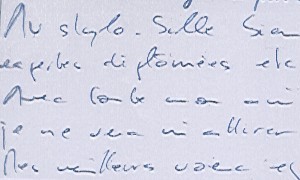 Au stylo. Salle
expertes diplômées etc
Avec toute mon ami
je ne veux m'attirer
Mes meilleurs voeux et